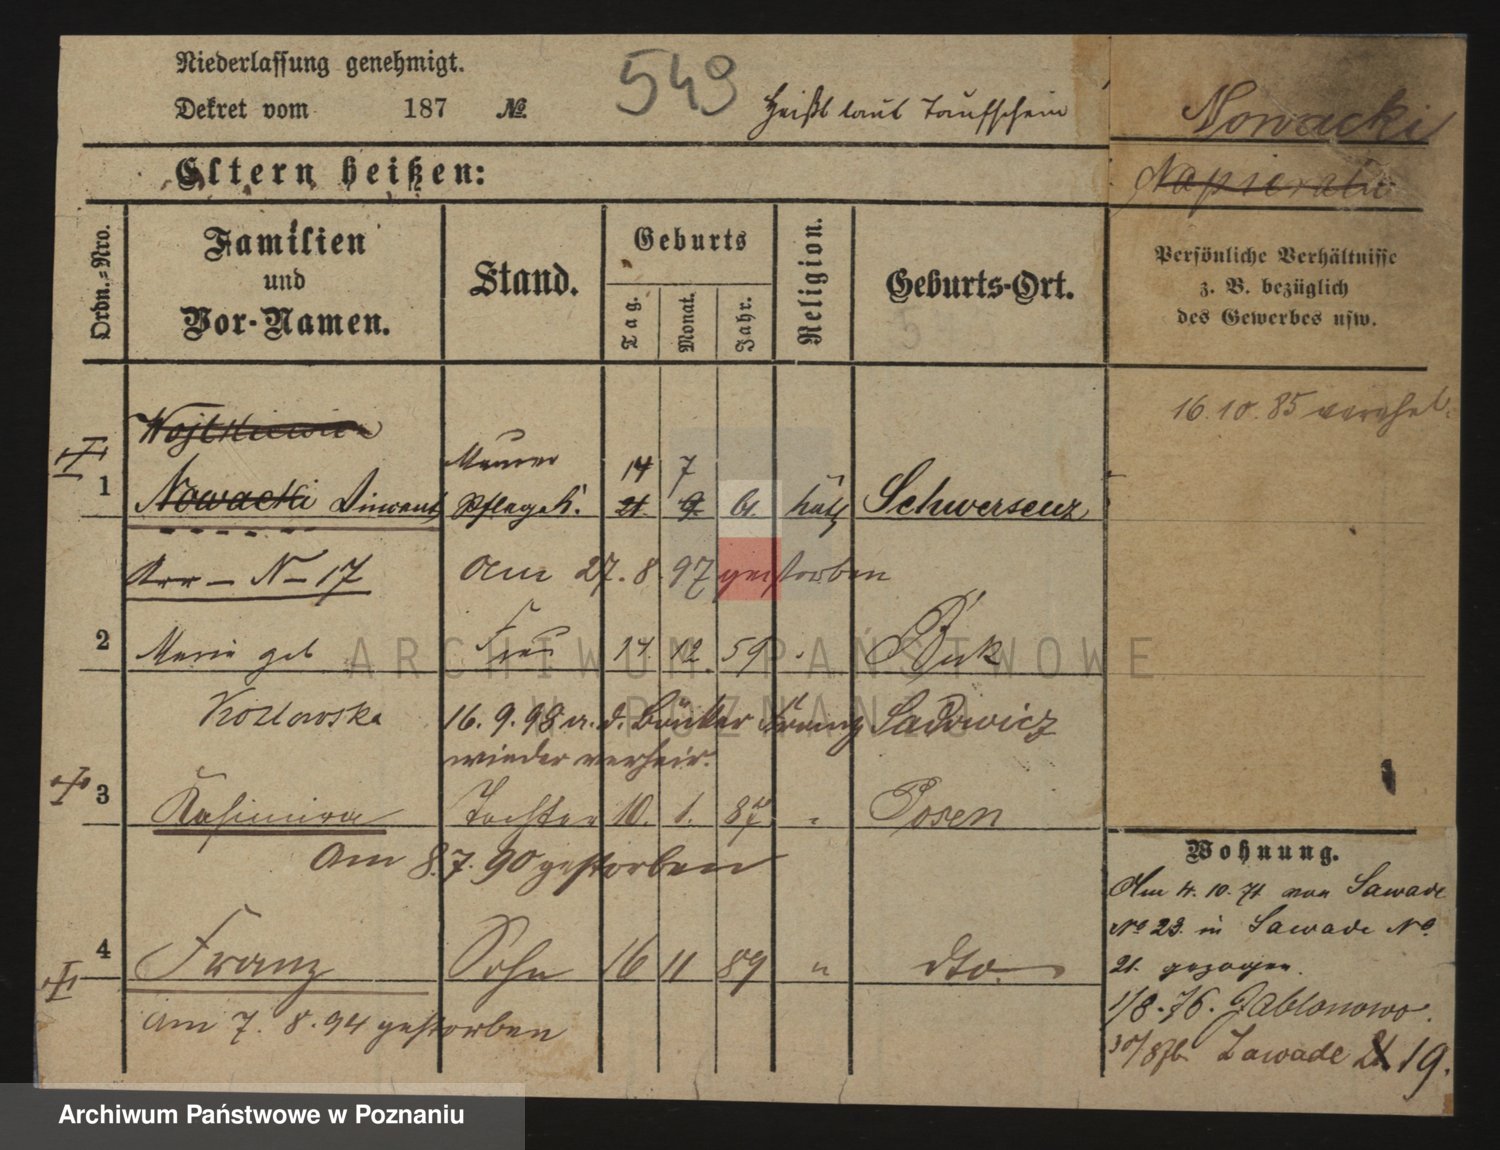 Niederlassung genehmigt.
Dekret vom 187 №
549
Heißt laut Taufschein
Nowacki
Eltern heißen:
Ordn.=Nro.
Familien
und
Vor-Namen.
Stand.
Geburts
Tag.
Monat.
Jahr.
Religion.
Geburts-Ort.
Persönliche Verhältnisse
z. B. bezüglich
des Gewerbes usw.
16.10.85 verehel.
Maurer 14 7
1 Nowacki Vincent Pflegek. 21. 9. 61. kath Schwersenz
N-17
Am 27.8.97 gestorben
2 Marie geb Frau 14. 12. 59 Buk
Kozlowska
16.9.98 m. d. Böttker Franz Sadowicz
wieder verheir.
3 Kasimira Tochter 10. 1. 87 " Posen
Am 8.7.90 gestorben
4 Franz Sohn 16 11 89 " dto.
am 7.8.94 gestorben
Wohnung.
Am 4.10.71 von Zawade
№ 23 in Zawade №
21. gezogen.
1/8.76. Jablonowo.
Zawade 21 19.
ARCHIWUM PAŃSTWOWE
W POZNANIU
Archiwum Państwowe w Poznaniu